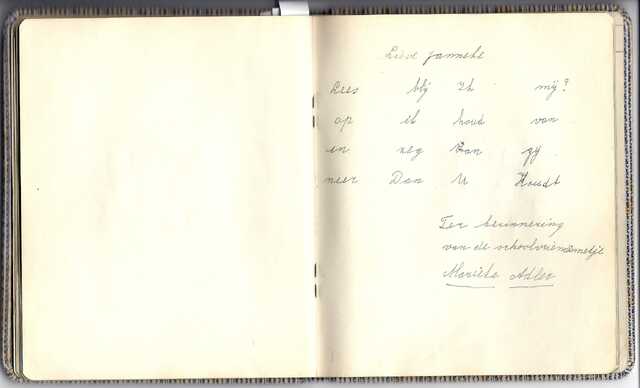 Lieve Janneke
Lees blij Ik mij?
op ik houd van
en zeg van gij
neer Dan U Houdt
Ter herinnering
van de schoolvriendinnetje
Mariëtte Adler